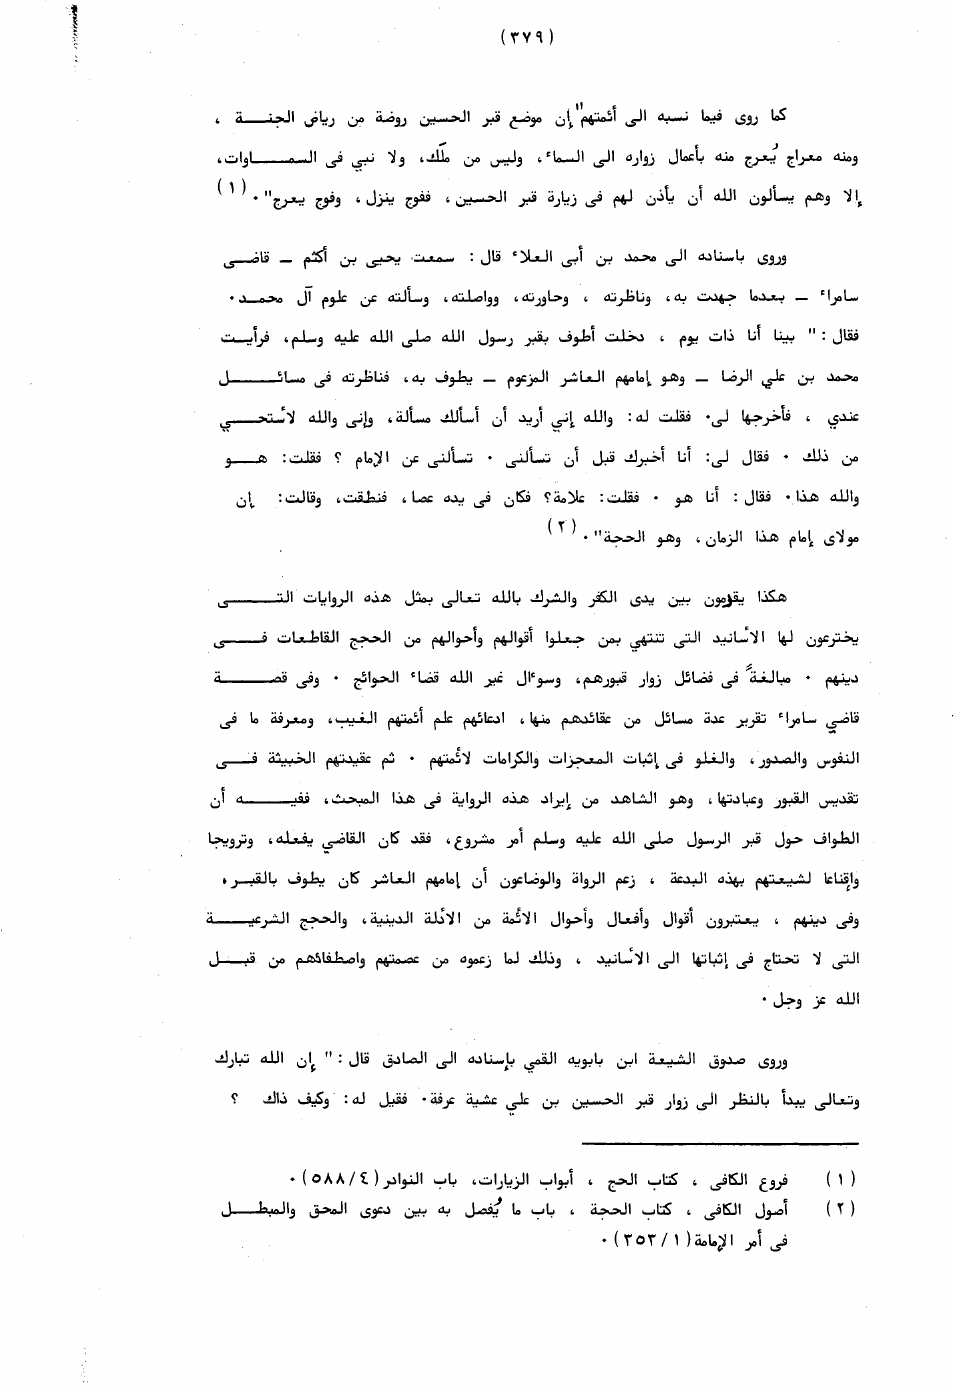 (٣٧٩)
كما روى فيما نسبه الى أئمتهم "إن موضع قبر الحسين روضة من رياض الجنـــة ،
ومنه معراج يُعرج منه بأعمال زواره الى السماء، وليس من ملَك، ولا نبي فى السمـــاوات،
إلا وهم يسألون الله أن يأذن لهم فى زيارة قبر الحسين، ففوج ينزل ، وفوج يعرج"٠(١)
وروى باسناده الى محمد بن أبى العلاء قال : سمعت يحيى بن أكثم – قاضـى
سامراء – بعدما جهدت به، وناظرته ، وحاورته، وواصلته، وسألته عن علوم آل محمـد٠
فقال : " بينا أنا ذات يوم ، دخلت أطوف بقبر رسول الله صلى الله عليه وسلم، فرأيـت
محمد بن علي الرضا – وهو إمامهم العاشر المزعوم – يطوف به، فناظرته فى مسائـــل
عندي ، فأخرجها لى٠ فقلت له: والله إني أريد أن أسألك مسألة، وإنى والله لأستحـــي
من ذلك ٠ فقال لى: أنا أخبرك قبل أن تسألنى ٠ تسألنى عن الإمام ؟ فقلت: هـــو
والله هذا٠ فقال : أنا هو ٠ فقلت: علامة؟ فكان فى يده عصا، فنطقت، وقالت: إن
مولاى إمام هذا الزمان، وهو الحجة"٠(٢)
هكذا يقومون بين يدى الكفر والشرك بالله تعالى بمثل هذه الروايات التـــى
يخترعون لها الأسانيد التى تنتهي بمن جعلوا أقوالهم وأحوالهم من الحجج القاطعات فـــى
دينهم ٠ مبالغةً فى فضائل زوار قبورهم، وسوءال غير الله قضاء الحوائج ٠ وفى قصـــة
قاضي سامراء تقرير عدة مسائل من عقائدهم منها، ادعائهم علم أئمتهم الغيب، ومعرفة ما فى
النفوس والصدور، والغلو فى إثبات المعجزات والكرامات لائمتهم ٠ ثم عقيدتهم الخبيثة فـــى
تقديس القبور وعبادتها، وهو الشاهد من إيراد هذه الرواية فى هذا المبحث، ففيـــه أن
الطواف حول قبر الرسول صلى الله عليه وسلم أمر مشروع، فقد كان القاضي يفعله، وترويجا
وإقناعا لشيعتهم بهذه البدعة ، زعم الرواة والوضاعون أن إمامهم العاشر كان يطوف بالقبـر٠
وفى دينهم ، يعتبرون أقوال وأفعال وأحوال الائمة من الأدلة الدينية، والحجج الشرعيـــة
التى لا تحتاج فى إثباتها الى الأسانيد ، وذلك لما زعموه من عصمتهم واصطفائهم من قبـــل
الله عز وجل ٠
وروى صدوق الشيعة ابن بابويه القمي بإسناده الى الصادق قال : " إن الله تبارك
وتعالى يبدأ بالنظر الى زوار قبر الحسين بن علي عشية عرفة٠ فقيل له: وكيف ذاك ؟
(١) فروع الكافى ، كتاب الحج ، أبواب الزيارات، باب النوادر(٤/٥٨٨)٠
(٢) أصول الكافى ، كتاب الحجة ، باب ما يُفصل به بين دعوى المحق والمبطـــل
فى أمر الإمامة(١/٣٥٣)٠